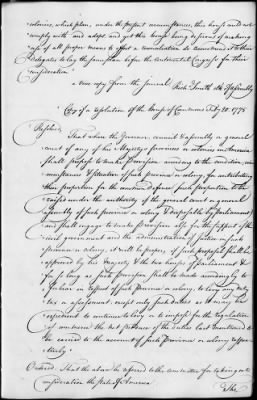 colonies, which plan, under the present circumstances, this house could not
comply with and adopt, and yet this house being desirous of making
use of all proper means to effect a reconciliation do recommend to their
delegates to lay the same plan before the continental Congress for their
consideration
a true copy from the journal Rich. Smith Clk Assembly
Copy of a resolution of the house of Commons Feby 20. 1775
Resolved,
That where the Governor, council & assembly or general
court of any of his Majesty's provinces or colonies in America
shall propose to make provision according to the condition, circumstances
& situation of such province or colony, for contributing
their proportion for the common defence such proportion to be
raised under the authority of the general court or general
assembly of such province or colony & disposable by parliament,
and shall engage to make provision also for the support of the
civil government and the administration of justice in such
province or colony, it will be proper, if such proposal shall be
approved by his Majesty & the two houses of parliament &
for so long as such provision shall be made accordingly to
forbear in respect of such province or colony, to levy any duty
tax or assessment, except only such duties as it may be
expedient to continue to levy or to impose for the regulation
of commerce the net produce of the duties last mentioned to
be carried to the account of such province or colony respectively
Ordered That the above be referred to the committee for taking into
consideration the state of America
The